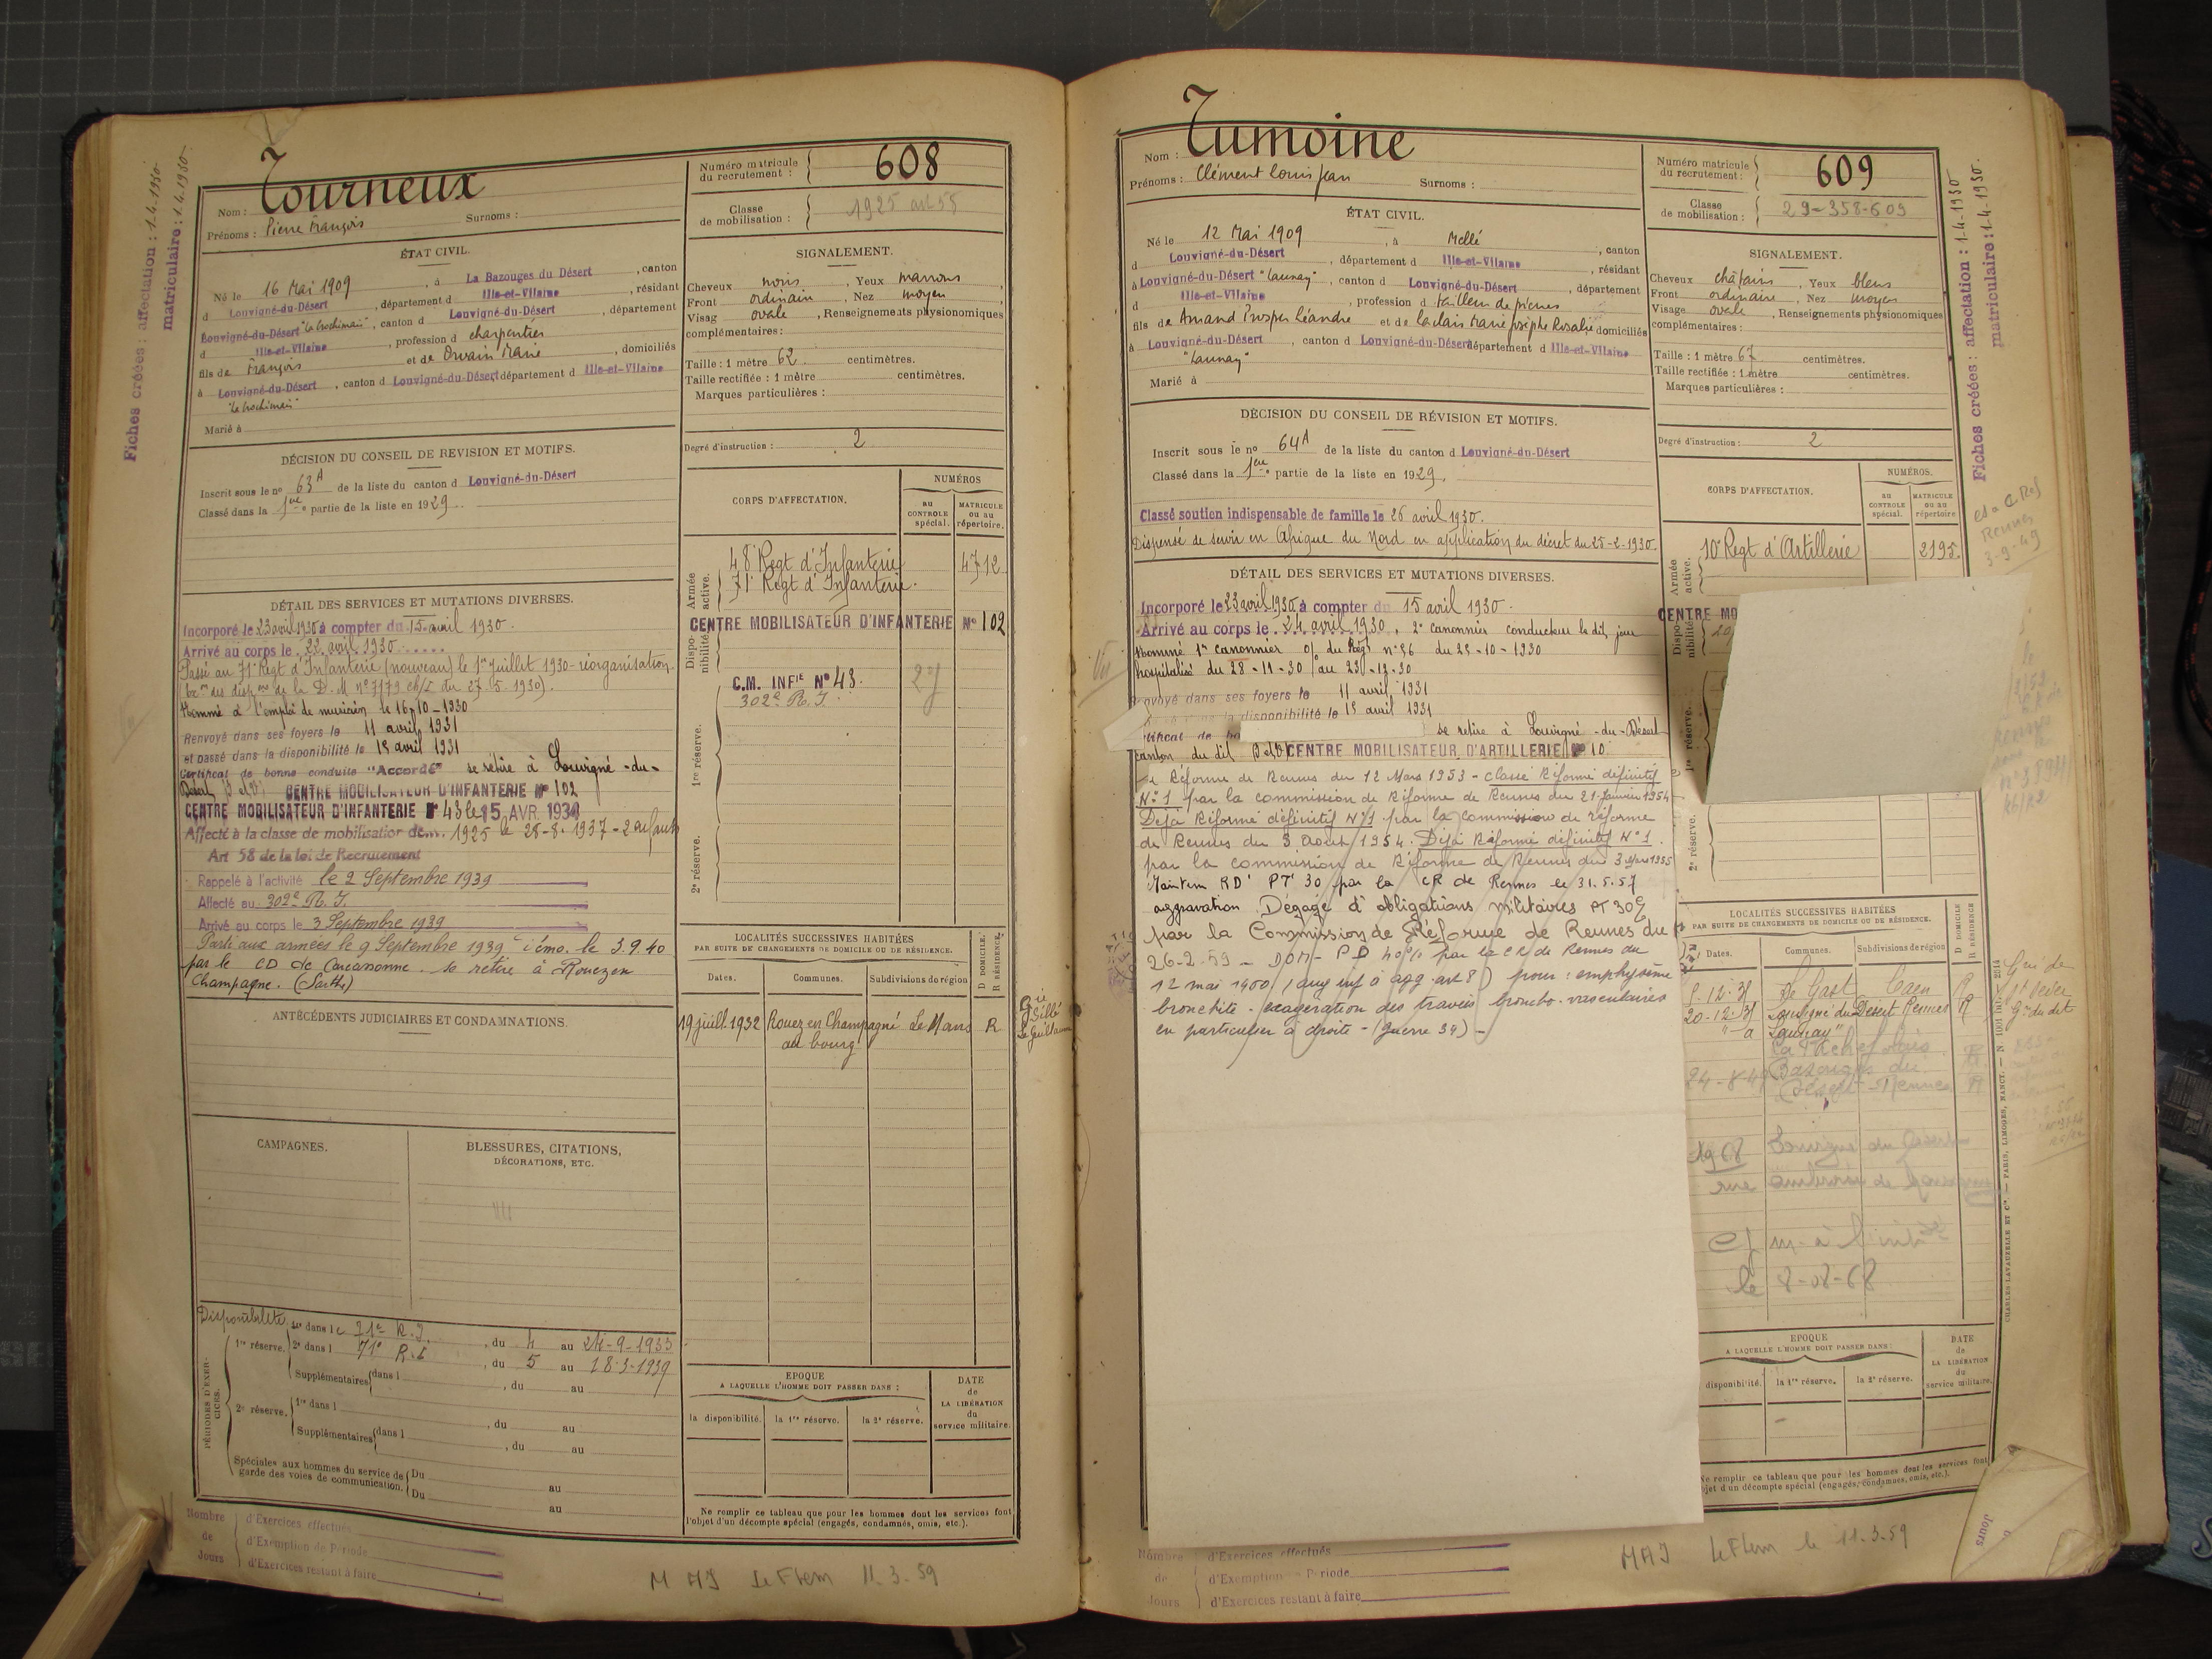 Fiches créées : affectation : 1.4.1930
matriculaire : 1.4.1930.
Nom : Tourneux
Prénoms : Pierre François Surnoms :
Numéro matricule du recrutement : 608
Classe de mobilisation : 1925 art 58
ÉTAT CIVIL.
Né le 16 Mai 1909, à La Bazouges du Désert, canton
d Louvigné-du-Désert, département d Ille-et-Vilaine, résidant
Louvigné-du-Désert, canton d Louvigné-du-Désert, département
d Ille-et-Vilaine, profession d charpentier
fils de François et de Marie, domiciliés
à Louvigné-du-Désert, canton d Louvigné-du-Désert département d Ille-et-Vilaine
Marié à
SIGNALEMENT.
Cheveux noirs, Yeux marrons
Front ordinaire, Nez moyen,
Visag ovale, Renseignements physionomiques
complémentaires :
Taille : 1 mètre 62 centimètres.
Taille rectifiée : 1 mètre centimètres.
Marques particulières :
Degré d'instruction : 2
DÉCISION DU CONSEIL DE REVISION ET MOTIFS.
Inscrit sous le no 63A de la liste du canton d Louvigné-du-Désert
Classé dans la 1ere partie de la liste en 1929.
CORPS D'AFFECTATION.
NUMÉROS
au CONTROLE spécial.
MATRICULE ou au répertoire.
Armée active.
48e Regt d'Infanterie 4712
71e Regt d'Infanterie.
Disponibilité
CENTRE MOBILISATEUR D'INFANTERIE No 102
C.M. INFIE No 43.
302e R.I.
1re réserve.
2e réserve.
DÉTAIL DES SERVICES ET MUTATIONS DIVERSES.
Incorporé le 23 avril 1930 à compter du 15 avril 1930.
Arrivé au corps le 22 avril 1930
Passé au 71e Regt d'Infanterie (nouveau) le 1er Juillet 1930 - réorganisation.
de la D.M no 7179 du 27.5.1930).
Nommé à l'emploi de musicien le 16-10-1930
Renvoyé dans ses foyers le 11 avril 1931
et passé dans la disponibilité le 15 avril 1931
Certificat de bonne conduite "Accordé" se retire à Louvigné-du-
Désert CENTRE MOBILISATEUR D'INFANTERIE No 102
CENTRE MOBILISATEUR D'INFANTERIE No 43 le 15 AVR. 1934
Affecté à la classe de mobilisation de 1925 le 28-8-1937 - 2 enfants
Art 58 de la loi de Recrutement
Rappelé à l'activité le 2 Septembre 1939
Affecté au 302e R.I.
Arrivé au corps le 3 Septembre 1939
Parti aux armées le 9 Septembre 1939 démo. le 3.9.40
par le CD de Carcassonne. se retire à Rouez en
Champagne. (Sarthe)
ANTÉCÉDENTS JUDICIAIRES ET CONDAMNATIONS.
LOCALITÉS SUCCESSIVES HABITÉES
PAR SUITE DE CHANGEMENTS DE DOMICILE OU DE RÉSIDENCE.
D DOMICILE. R RÉSIDENCE.
Dates. Communes. Subdivisions de région
19 juill. 1932 Rouez en Champagne Le Mans R
au bourg
Gie Sillé Le Guillaume
CAMPAGNES.
BLESSURES, CITATIONS,
DÉCORATIONS, ETC.
PÉRIODES D'EXERCICES.
Disponibilité.
1re réserve. 1re dans le 21e R.I., du 4 au 24-9-1933
2e dans l 71e R.I, du 5 au 18-3-1939
Supplémentaires dans l, du au
2e réserve. 1re dans l, du au
Supplémentaires dans l, du au
Spéciales aux hommes du service de garde des voies de communication. Du au
Du au
EPOQUE
A LAQUELLE L'HOMME DOIT PASSER DANS :
la disponibilité. la 1re réserve. la 2e réserve.
DATE de LA LIBÉRATION du service militaire.
Ne remplir ce tableau que pour les hommes dont les services font
l'objet d'un décompte spécial (engagés, condamnés, omis, etc.).
Nombre de Jours
d'Exercices effectués
d'Exemption de Période
d'Exercices restant à faire
MAJ Le Flem 11.3.59
Nom : Tumoine
Prénoms : Clément Louis Jean Surnoms :
Numéro matricule du recrutement : 609
Classe de mobilisation : 29-358-609
ÉTAT CIVIL.
Né le 12 Mai 1909, à Mellé, canton
d Louvigné-du-Désert, département d Ille-et-Vilaine, résidant
à Louvigné-du-Désert "Launay", canton d Louvigné-du-Désert, département
d Ille-et-Vilaine, profession d tailleur de pierres
fils de Amand Prosper Léandre et de Marie Josèphe Rosalie domiciliés
à Louvigné-du-Désert, canton d Louvigné-du-Désert département d Ille-et-Vilaine
"Launay"
Marié à
SIGNALEMENT.
Cheveux châtains, Yeux bleus
Front ordinaire, Nez moyen
Visage ovale, Renseignements physionomiques
complémentaires :
Taille : 1 mètre 67 centimètres.
Taille rectifiée : 1 mètre centimètres.
Marques particulières :
Degré d'instruction : 2
Fiches créées : affectation : 1-4-1930
matriculaire : 1-4-1930.
DÉCISION DU CONSEIL DE RÉVISION ET MOTIFS.
Inscrit sous le no 64A de la liste du canton d Louvigné-du-Désert
Classé dans la 1ere partie de la liste en 1929.
Classé soutien indispensable de famille le 26 avril 1930.
Dispensé de servir en Afrique du Nord en application du décret du 25-2-1930.
CORPS D'AFFECTATION.
NUMÉROS.
au CONTROLE spécial.
MATRICULE ou au répertoire
Armée active.
10e Regt d'Artillerie 2195.
Rennes
3-9-49
CENTRE MO
Disponibilité
1re réserve.
2e réserve.
DÉTAIL DES SERVICES ET MUTATIONS DIVERSES.
Incorporé le 23 avril 1930 à compter du 15 avril 1930.
Arrivé au corps le 24 avril 1930, 2e canonnier conducteur le dit jour
Nommé 1er canonnier o/ du Régt no 86 du 28-10-1930
hospitalisé du 28-11-30 au 23-12-30
Renvoyé dans ses foyers le 11 avril 1931
la disponibilité le 15 avril 1931
se retire à Louvigné-du-Désert
canton du dit CENTRE MOBILISATEUR D'ARTILLERIE No 10
de Réforme de Rennes du 12 Mars 1953 - classé Réformé définitif
No 1 par la commission de Réforme de Rennes du 21 Janvier 1954
Déjà Réformé définitif No 1 par la commission de réforme
de Rennes du 3 Août 1954. Déjà Réformé définitif No 1.
par la commission de Réforme de Rennes du 3 Mars 1955
Maintenu RD1 PT 30 par la CR de Rennes le 31.5.57
aggravation. Dégagé d'obligations militaires PT 30%
par la Commission de Réforme de Rennes du
26-2-59 - DOM - PD 40% par la CR de Rennes du
12 mai 1960 (aug inf à agg art 8) pour : emphysème
bronchite. exagération des travées broncho-vasculaires
en particulier à droite - (guerre 39) -
LOCALITÉS SUCCESSIVES HABITÉES
PAR SUITE DE CHANGEMENTS DE DOMICILE OU DE RÉSIDENCE.
D DOMICILE R RÉSIDENCE
Dates. Communes. Subdivisions de région
Le Gast Caen R
20-12-31 Louvigné du Désert Rennes R
"Launay"
Bazouges du
Désert - Rennes R
1968 Louvigné du Désert
rue
le 8-08-68
CHARLES-LAVAUZELLE ET Cie. — PARIS, LIMOGES, NANCY.
EPOQUE
A LAQUELLE L'HOMME DOIT PASSER DANS :
disponibilité. la 1re réserve. la 2e réserve.
DATE de LA LIBÉRATION du service militaire.
Ne remplir ce tableau que pour les hommes dont les services font
objet d'un décompte spécial (engagés, condamnés, omis, etc.).
Nombre de Jours
d'Exercices effectués
d'Exemption Période
d'Exercices restant à faire
MAJ Le Flem le 11.3.59
Jours